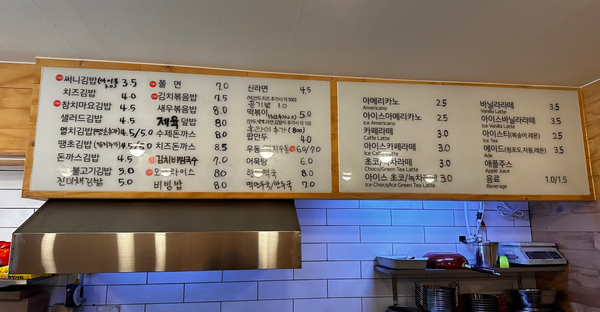 써니김밥 3.5
치즈김밥 4.0
참치마요김밥 4.5
샐러드김밥 4.5
멸치김밥 4.5/5.0
땡초김밥 4.5/5.0
돈까스김밥 4.5
불고기김밥 5.0
5.0
쫄 면 7.0
김치볶음밥 7.5
새우볶음밥 8.0
제육 덮밥 8.0
수제돈까스 8.0
치즈돈까스 8.5
김치비빔국수 7.0
오므라이스 8.0
비빔밥 8.0
신라면 4.5
공기밥 1.0
떡볶이 5.0
후라이 추가
팝만두 4.0
우동 6.0/7.0
어묵탕 6.0
떡국 8.0
7.0
아메리카노 2.5
Americano
아이스아메리카노 2.5
Ice Americano
카페라떼 3.0
Caffe Latte
아이스카페라떼 3.0
Ice Caffe Latte
초코/녹차라떼 3.0
Choco/Green Tea Latte
아이스 초코/녹차라떼 3.0
Ice Choco/Ice Green Tea Latte
바닐라라떼 3.5
Vanilla Latte
아이스바닐라라떼 3.5
Ice Vanilla Latte
아이스티(복숭아,레몬) 2.5
Ice Tea
에이드(청포도,자몽,레몬) 3.5
Ade
애플주스 3.5
Apple Juice
음료 1.0/1.5
Beverage